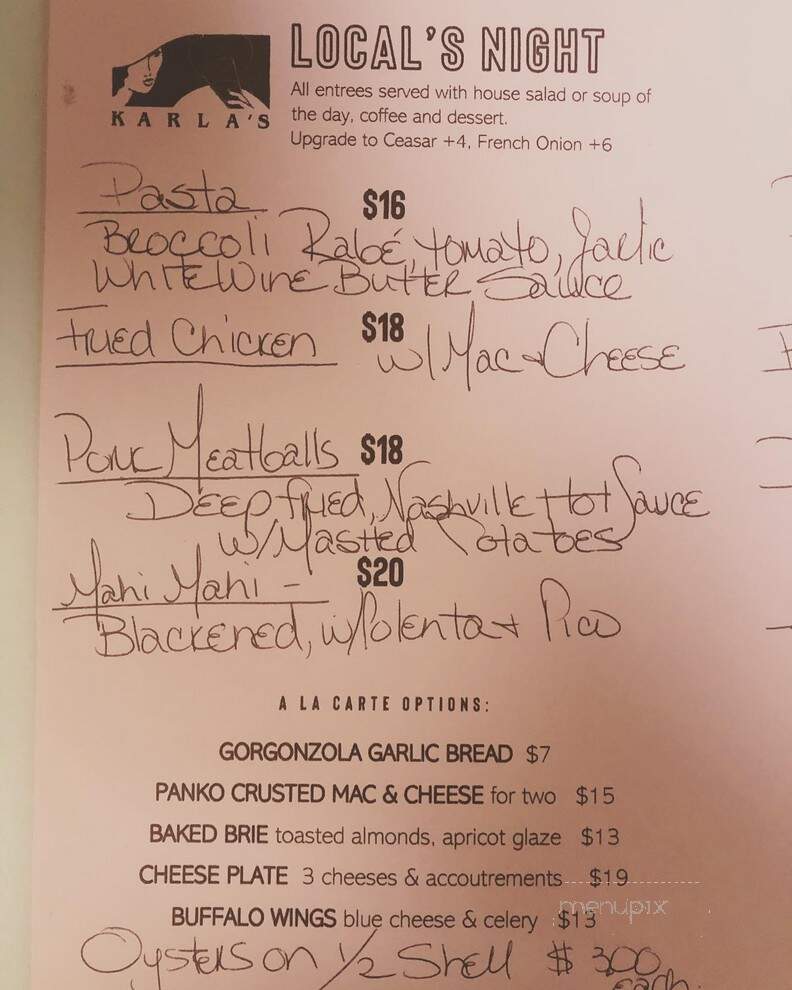 LOCAL'S NIGHT
KARLA'S
All entrees served with house salad or soup of
the day, coffee and dessert.
Upgrade to Ceasar +4, French Onion +6
Pasta $16
Broccoli Rabé, tomato, garlic
White Wine Butter Sauce
Fried Chicken $18 w/ Mac & Cheese
Pork Meatballs $18
Deep fried, Nashville Hot Sauce
w/ Mashed Potatoes
Mahi Mahi - $20
Blackened, w/ Polenta + Pico
A LA CARTE OPTIONS:
GORGONZOLA GARLIC BREAD $7
PANKO CRUSTED MAC & CHEESE for two $15
BAKED BRIE toasted almonds, apricot glaze $13
CHEESE PLATE 3 cheeses & accoutrements $19
menupix
BUFFALO WINGS blue cheese & celery $13
Oysters on 1/2 Shell $ 3.00
each